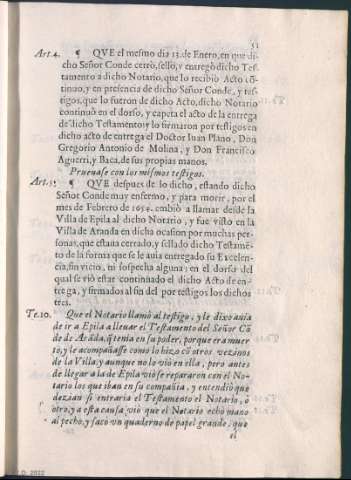 51
Art.4. ¶ QVE el mesmo dia 13. de Enero, en que di-
cho Señor Conde cerrò, sellò, y entregò dicho Tes-
tamento a dicho Notario, que lo recibiò Acto cõ-
tinuo, y en presencia de dicho Señor Conde, y tes-
tigos, que lo fueron de dicho Acto, dicho Notario
continuò en el dorso, y carpeta el acto de la entrega
de dicho Testamento; y lo firmaron por testigos en
dicho acto de entrega el Doctor Iuan Plano, Don
Gregorio Antonio de Molina, y Don Francisco
Aguerri, y Baca, de sus propias manos.
Prueuase con los mismos testigos.
Art.5. ¶ QVE despues de lo dicho, estando dicho
Señor Conde muy enfermo, y para morir, por el
mes de Febrero de 1654. embiò a llamar desde la
Villa de Epila al dicho Notario, y fue visto en la
Villa de Aranda en dicha ocasion por muchas per-
sonas, que estaua cerrado, y sellado dicho Testamẽ-
to de la forma que se le auia entregado su Excelen-
cia, sin vicio, ni sospecha alguna: en el dorso del
qual se viò estar continuado el dicho Acto de en-
trega, y firmados al fin del por testigos los dichos
tres.
Te.10. Que el Notario llamò al testigo, y le dixo auia
de ir a Epila a lleuar el Testamento del Señor Cõ
de de Arãda, q̃ tenia en su poder, porque era muer
to, y le acompañasse como lo hizo cõ otros vezinos
de la Villa; y aunque no lo viò en ella, pero antes
de llegar a la de Epila viò se repararon con el No-
tario los que iban en su compañia, y entendiò que
dezian si entraria el Testamento el Notario, ò
otro, y a esta causa viò que el Notario echò mano
al pecho, y sacò vn quaderno de papel grande, que
el